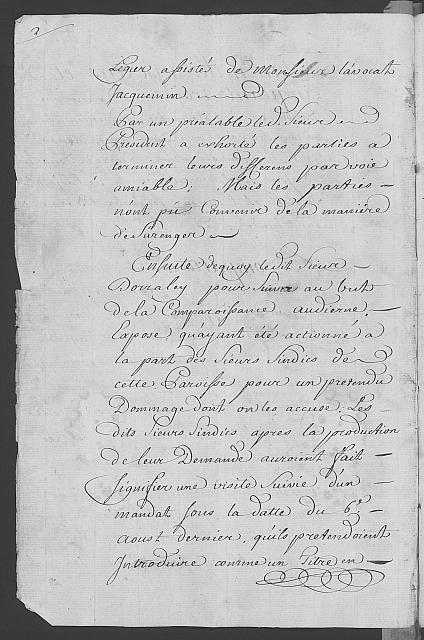 2
Leguer assistés de Monsieur l'avocat
Jacquemin
Par un préalable le d. Sieur
President a exhorté les parties a
terminer leurs differens par voie
amiable; Mais les parties
n'ont pû Convenir de la maniére
de s'arenger
Ensuite dequoy ledit Sieur
Dorzaley pour suivre au but
de la Comparoissance audienne,
Expose, qu'ayant été actionné a
la part des Sieurs Sindics de
cette Paroisse pour un pretendu
Dommage dont on les accuse. Les
dits Sieurs Sindics apres la production
de leur Demande auroient fait
signifier une visite Suivie d'un
mandat sous la datte du 6e.
aoust dernier, qu'ils pretendoient
Introduire comme un Titre en